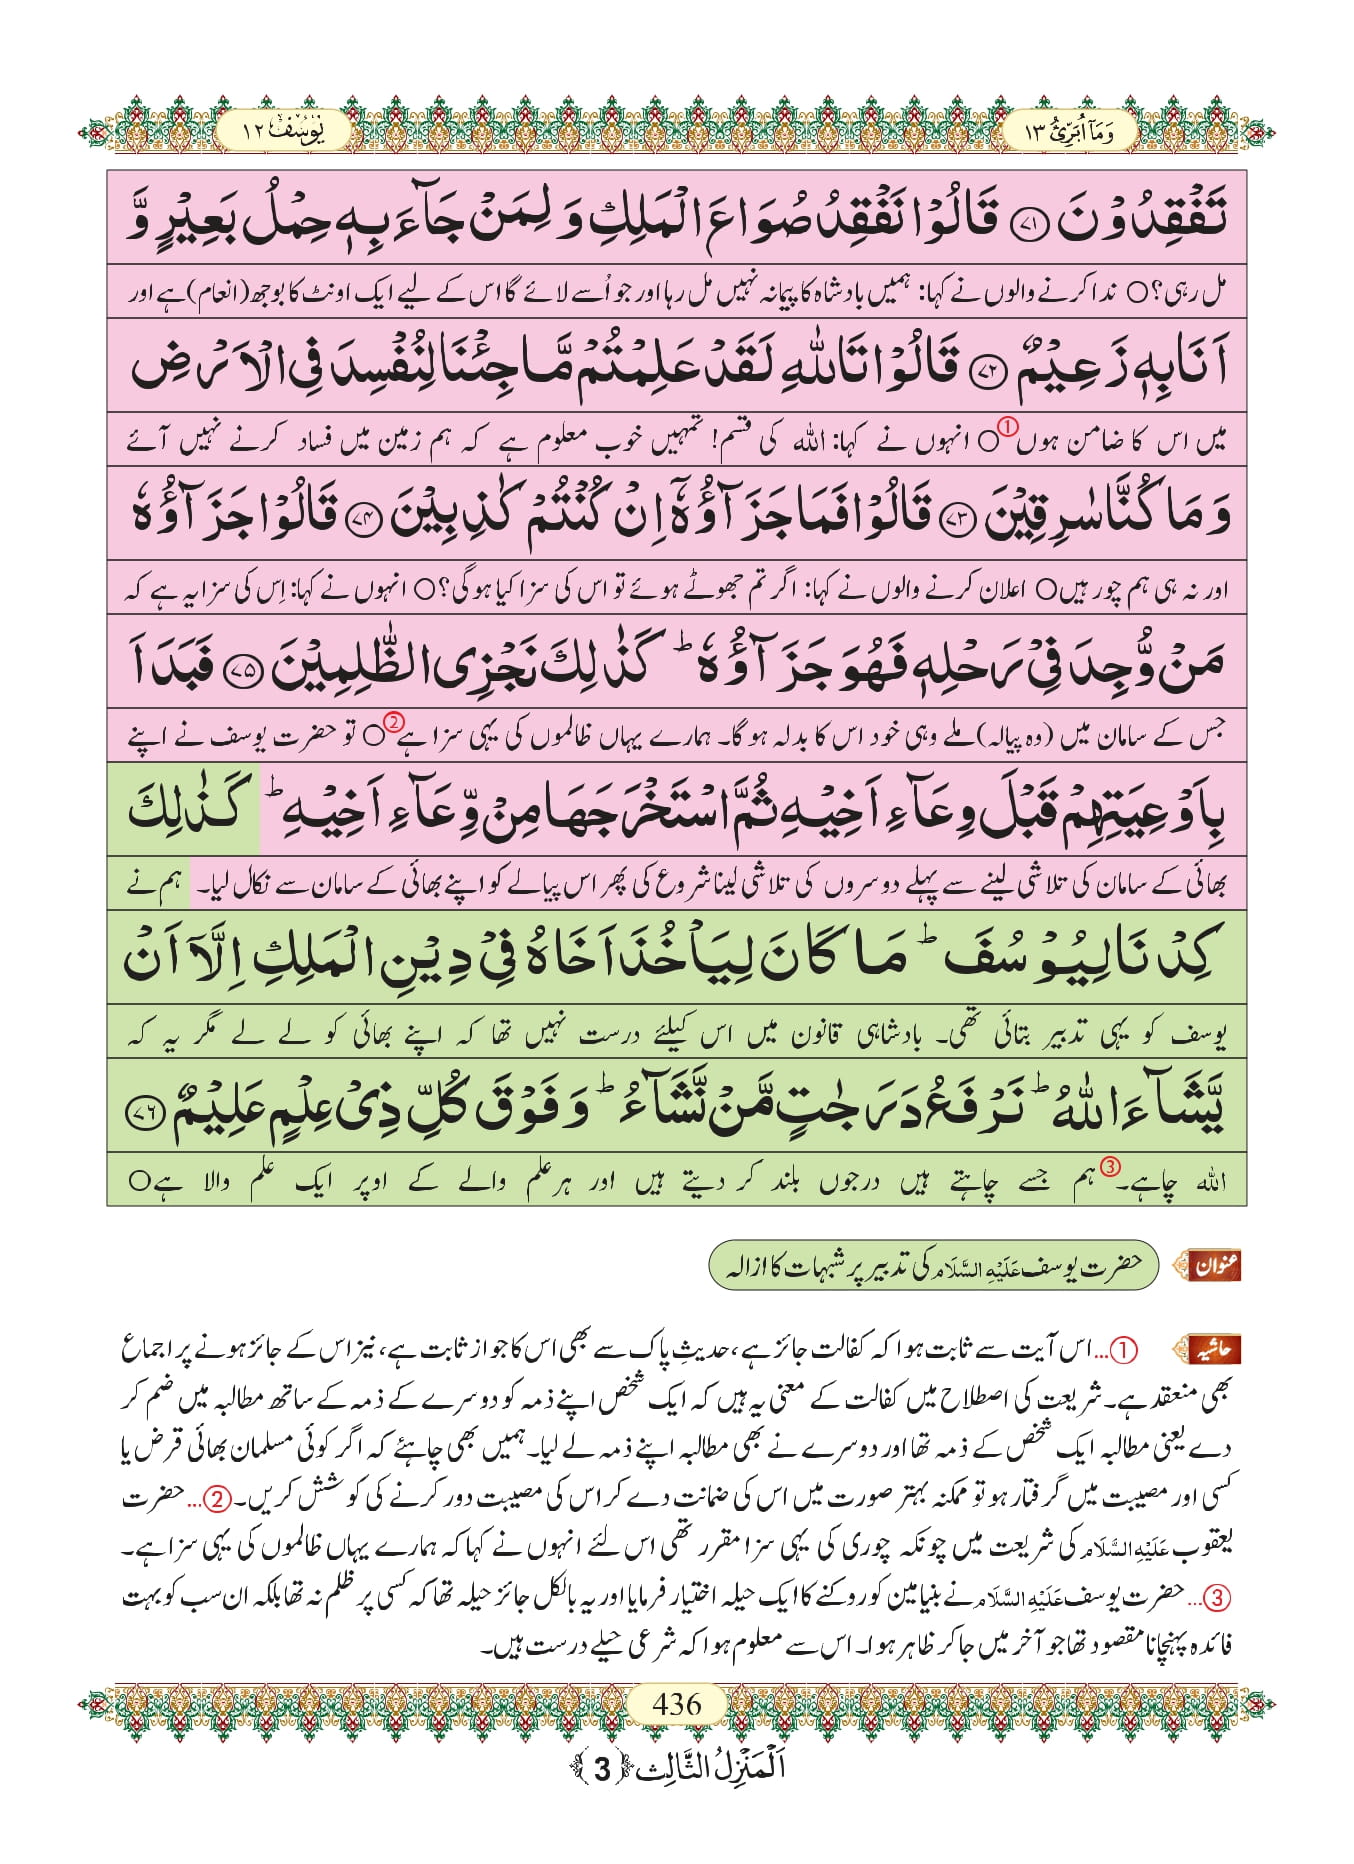 وَمَآ اُبَرِّئُ ١٣
يُوْسُف ١٢
تَفْقِدُوْنَ ﴿۷۱﴾ قَالُوْا نَفْقِدُ صُوَاعَ الْمَلِكِ وَ لِمَنْ جَآءَ بِهٖ حِمْلُ بَعِیْرٍ وَّ
مل رہی؟○ ندا کرنے والوں نے کہا: ہمیں بادشاہ کا پیمانہ نہیں مل رہا اور جو اُسے لائے گا اس کے لیے ایک اونٹ کا بوجھ (انعام) ہے اور
اَنَا بِهٖ زَعِیْمٌ ﴿۷۲﴾ قَالُوْا تَاللّٰهِ لَقَدْ عَلِمْتُمْ مَّا جِئْنَا لِنُفْسِدَ فِی الْاَرْضِ
میں اس کا ضامن ہوں①○ انہوں نے کہا: اللہ کی قسم! تمہیں خوب معلوم ہے کہ ہم زمین میں فساد کرنے نہیں آئے
وَ مَا كُنَّا سٰرِقِیْنَ ﴿۷۳﴾ قَالُوْا فَمَا جَزَآؤُهٗۤ اِنْ كُنْتُمْ كٰذِبِیْنَ ﴿۷۴﴾ قَالُوْا جَزَآؤُهٗ
اور نہ ہی ہم چور ہیں○ اعلان کرنے والوں نے کہا: اگر تم جھوٹے ہوئے تو اس کی سزا کیا ہوگی؟○ انہوں نے کہا: اِس کی سزا یہ ہے کہ
مَنْ وُّجِدَ فِیْ رَحْلِهٖ فَهُوَ جَزَآؤُهٗ ؕ كَذٰلِكَ نَجْزِی الظّٰلِمِیْنَ ﴿۷۵﴾ فَبَدَاَ
جس کے سامان میں (وہ پیالہ) ملے وہی خود اس کا بدلہ ہوگا۔ ہمارے یہاں ظالموں کی یہی سزا ہے②○ تو حضرت یوسف نے اپنے
بِاَوْعِیَتِهِمْ قَبْلَ وِعَآءِ اَخِیْهِ ثُمَّ اسْتَخْرَجَهَا مِنْ وِّعَآءِ اَخِیْهِ ؕ كَذٰلِكَ
بھائی کے سامان کی تلاشی لینے سے پہلے دوسروں کی تلاشی لینا شروع کی پھر اس پیالے کو اپنے بھائی کے سامان سے نکال لیا۔ ہم نے
كِدْنَا لِیُوْسُفَ ؕ مَا كَانَ لِیَاْخُذَ اَخَاهُ فِیْ دِیْنِ الْمَلِكِ اِلَّاۤ اَنْ
یوسف کو یہی تدبیر بتائی تھی۔ بادشاہی قانون میں اس کیلئے درست نہیں تھا کہ اپنے بھائی کو لے لے مگر یہ کہ
یَّشَآءَ اللّٰهُ ؕ نَرْفَعُ دَرَجٰتٍ مَّنْ نَّشَآءُ ؕ وَ فَوْقَ كُلِّ ذِیْ عِلْمٍ عَلِیْمٌ ﴿۷۶﴾
اللہ چاہے۔③ ہم جسے چاہتے ہیں درجوں بلند کر دیتے ہیں اور ہر علم والے کے اوپر ایک علم والا ہے○
عنوان حضرت یوسف عَلَیْهِ السَّلَام کی تدبیر پر شبہات کا ازالہ
حاشیہ ①…اس آیت سے ثابت ہوا کہ کفالت جائز ہے، حدیثِ پاک سے بھی اس کا جواز ثابت ہے، نیز اس کے جائز ہونے پر اجماع
بھی منعقد ہے۔ شریعت کی اصطلاح میں کفالت کے معنی یہ ہیں کہ ایک شخص اپنے ذمہ کو دوسرے کے ذمہ کے ساتھ مطالبہ میں ضم کر
دے یعنی مطالبہ ایک شخص کے ذمہ تھا اور دوسرے نے بھی مطالبہ اپنے ذمہ لے لیا۔ ہمیں بھی چاہئے کہ اگر کوئی مسلمان بھائی قرض یا
کسی اور مصیبت میں گرفتار ہو تو ممکنہ بہتر صورت میں اس کی ضمانت دے کر اس کی مصیبت دور کرنے کی کوشش کریں۔②…حضرت
یعقوب عَلَیْهِ السَّلَام کی شریعت میں چونکہ چوری کی یہی سزا مقرر تھی اس لئے انہوں نے کہا کہ ہمارے یہاں ظالموں کی یہی سزا ہے۔
③…حضرت یوسف عَلَیْهِ السَّلَام نے بنیامین کو روکنے کا ایک حیلہ اختیار فرمایا اور یہ بالکل جائز حیلہ تھا کہ کسی پر ظلم نہ تھا بلکہ ان سب کو بہت
فائدہ پہنچانا مقصود تھا جو آخر میں جا کر ظاہر ہوا۔ اس سے معلوم ہوا کہ شرعی حیلے درست ہیں۔
436
اَلْمَنْزِلُ الثَّالِث ﴿3﴾